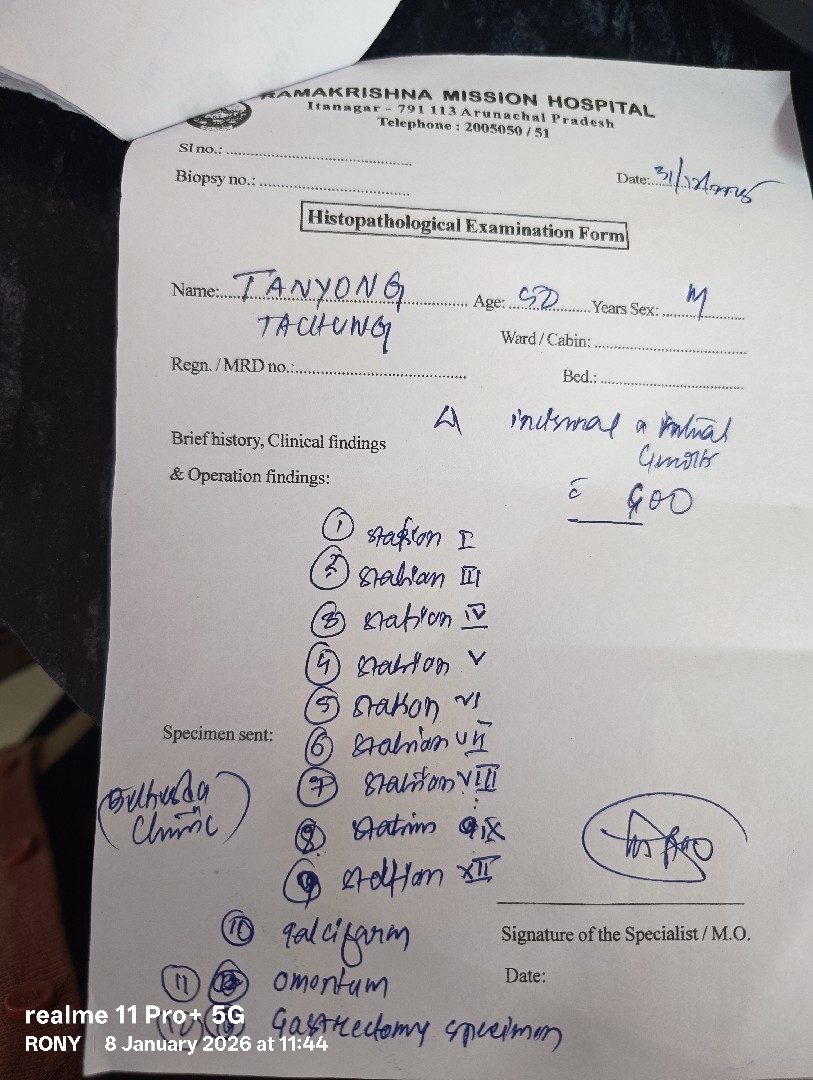 RAMAKRISHNA MISSION HOSPITAL
Itanagar - 791 113 Arunachal Pradesh
Telephone : 2005050 / 51
Sl no.:
Biopsy no.:
Date: 31/12/2025
Histopathological Examination Form
Name: TANYONG
TACHUNG
Age: 50 Years Sex: M
Ward / Cabin:
Regn. / MRD no.:
Bed.:
Brief history, Clinical findings
& Operation findings:
c̄ GOO
① station I
② station III
③ station IV
④ station V
⑤ station VI
Specimen sent:
⑥ station VII
⑦ station VIII
⑧ station IX
⑨ station XII
Clinic
⑩ falciform
⑪ omentum
⑫ Gastrectomy specimen
Signature of the Specialist / M.O.
Date:
realme 11 Pro+ 5G
RONY 8 January 2026 at 11:44